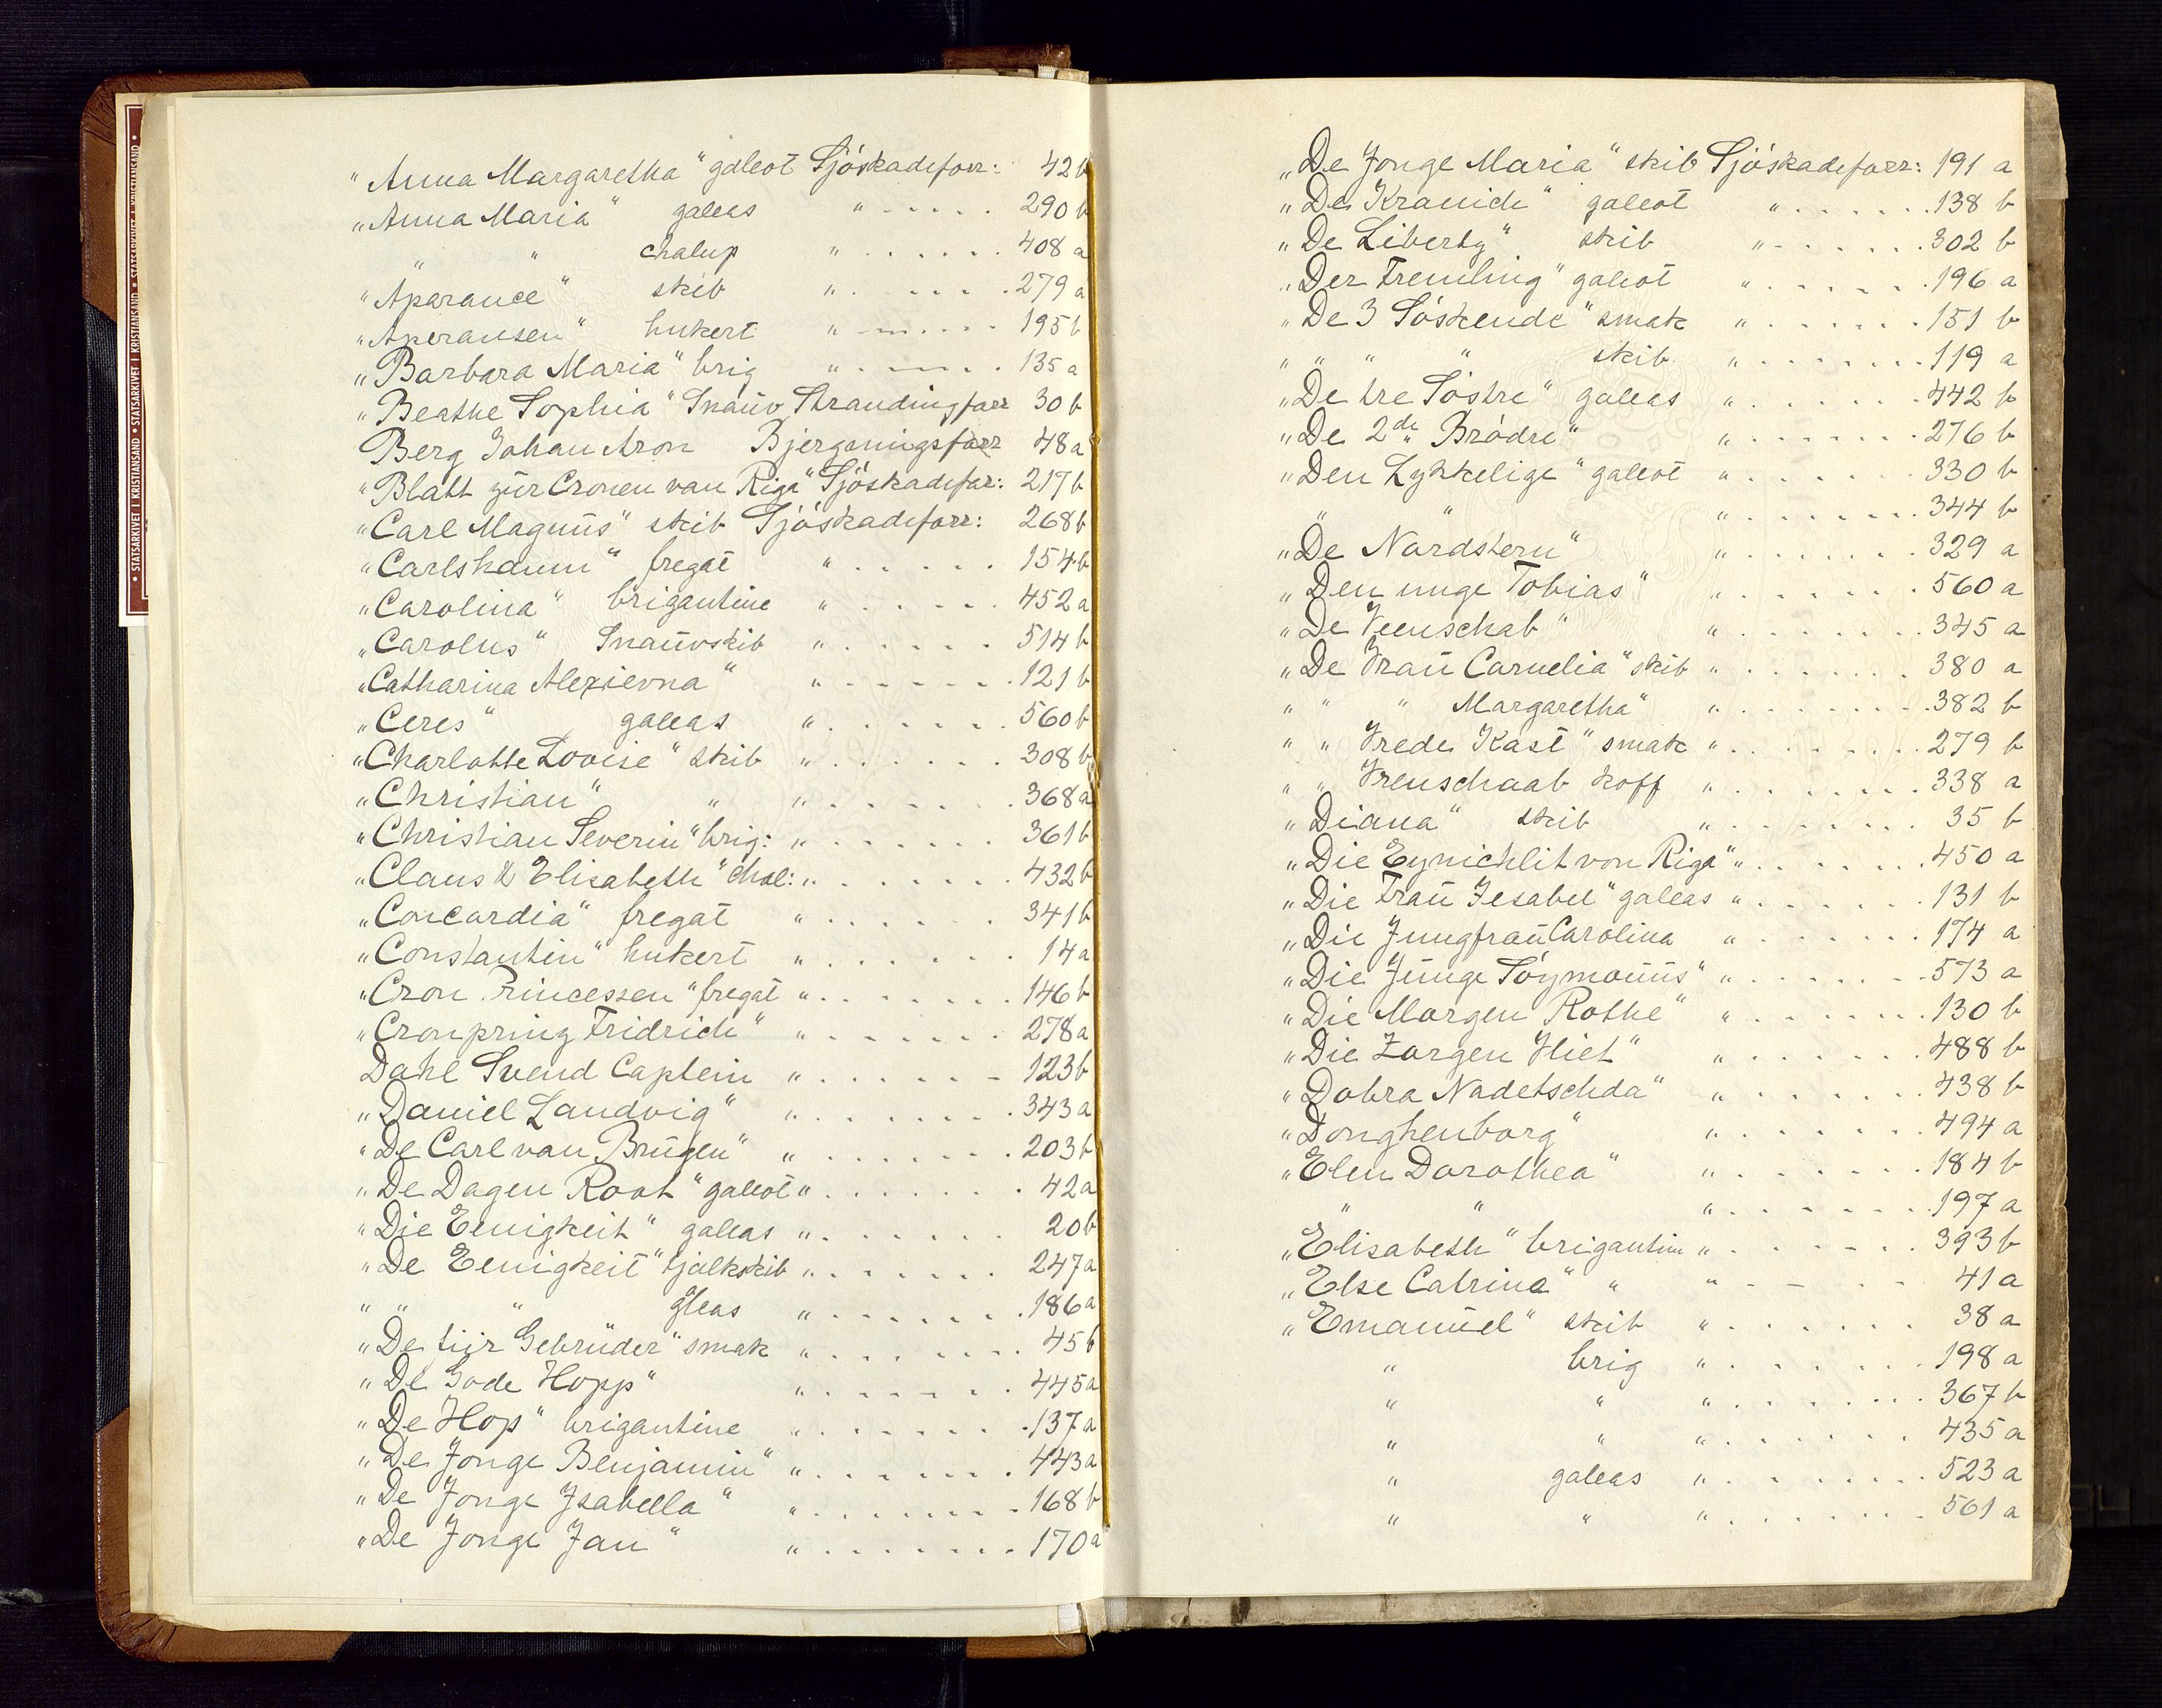 • STATSARKIVET I KRISTIANSAND • STATSARKIVET I KRISTIANSAND • STATSARKIVET I KRISTIANSAND •
"Anna Margaretha" galeot Sjöskadeforr: 42 b
"Anna Maria" galeas " . . . . . 290 b
" " chalup " . . . . . . 408 a
"Aparance" skib " . . . . . 279 a
"Aperansen" hukert " . . . . . 195 b
"Barbara Maria" brig " . . . . . 135 a
"Beathe Sophia" Snaŭv Strandingforr 30 b
Berg Johan Aron Bjergningsforr 48 a
"Blatt zŭr Cronen van Riga" Sjöskadefor: 217 b
"Carl Magnŭs" skib Sjöskadeforr: 268 b
"Carlshamn" fregat " . . . . . 154 b
"Carolina" brigantine " . . . . . 452 a
"Carolus" Snaŭvskib " . . . . . 514 b
"Catharina Alexievna" " . . . . . . 121 b
"Ceres" galeas " . . . . . . 560 b
"Charlotte Lovise" skib " . . . . . . 308 b
"Christian" " " . . . . . . 368 a
"Christian Severin" brig: " . . . . . . 361 b
"Claus & Elisabeth" chal: " . . . . . . 432 b
"Concordia" fregat " . . . . . 341 b
"Constantin" hukert " . . . . . . 14 a
"Cron Princessen" fregat " . . . . . . 146 b
"Cronprinz Fridrich" " . . . . . . 278 a
Dahl Svend Captein " . . . . . . 123 b
"Daniel Landvig" " . . . . . . 343 a
"De Carl van Brŭgen" " . . . . . . 203 b
"De Dagen Root" galeot " . . . . . . 42 a
"Die Eenigkeit" galeas " . . . . . . 20 b
"De Eenigkeit" tjalkskib " . . . . . . 247 a
" " " gleas " . . . . . . 186 a
"De Gebrüder" smak " . . . . . . 45 b
"De Gode Hopp" " . . . . . . 445 a
"De Hop" brigantine " . . . . . . 137 a
"De Jonge Benjamin" " . . . . . . 443 a
"De Jonge Jsabella" " . . . . . . 168 b
"De Jonge Jan" " . . . . . . 170 a
"De Jonge Maria" skib Sjöskadeforr: 191 a
"De Kranich" galeot " . . . . . . 138 b
"De Liberty" skib " . . . . . . 302 b
"Der Fremling" galeot " . . . . . . 196 a
"De 3 Söskende" smak " . . . . . . 151 b
" " " " skib " . . . . . . 119 a
"De tre Söstre" galeas " . . . . . . 442 b
"De 2de Brödre" " . . . . . . 276 b
"Den Lykkelige" galeot " . . . . . . 330 b
" " " . . . . . . 344 b
"De Nordstern" " . . . . . . 329 a
"Den unge Tobias" " . . . . . . 560 a
"De Veenschab" " . . . . . . 345 a
"De Vraŭ Carnelia" skib " . . . . . . 380 a
" " " Margaretha" " . . . . . . 382 b
" " Vrede Kast" smak " . . . . . . 279 b
" " Vrenschaab koff " . . . . . . 338 a
"Diana" skib " . . . . . . 35 b
"Die Eynichlit von Riga" " . . . . . . 450 a
"Die Fraŭ Jesabel" galeas " . . . . . . 131 b
"Die Jungfraŭ Carolina " . . . . . . 174 a
"Die Jŭnge Söymoŭŭs" " . . . . . . 573 a
"Die Morgen Rothe" " . . . . . . 130 b
"Die Zorgen Hiet" " . . . . . . 488 b
"Dobra Nadetschda" " . . . . . . 438 b
"Donghenborg" " . . . . . . 494 a
"Elen Dorothea" " . . . . . . 184 b
" " " . . . . . . 197 a
"Elisabeth" brigantin " . . . . . . 393 b
"Else Catrina" " " . . . . 41 a
"Emanŭel" skib " . . . . . . 38 a
" brig " . . . . . . 198 a
" " " . . . . . . 367 b
" " " . . . . . . 435 a
" galeas " . . . . . . 523 a
" " " . . . . . . 561 a